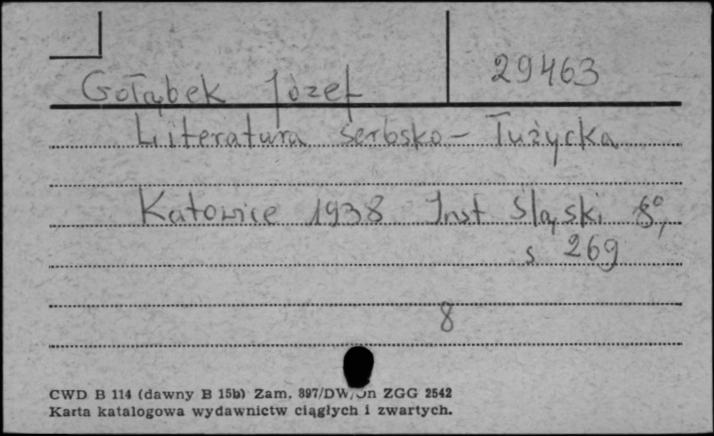 29463
Gołąbek Józef
Literatura serbsko-łużycka
Katowice 1938 Inst Śląski 8°,
s 269
8
CWD B 114 (dawny B 15b) Zam. 897/DW/Jn ZGG 2542
Karta katalogowa wydawnictw ciągłych i zwartych.